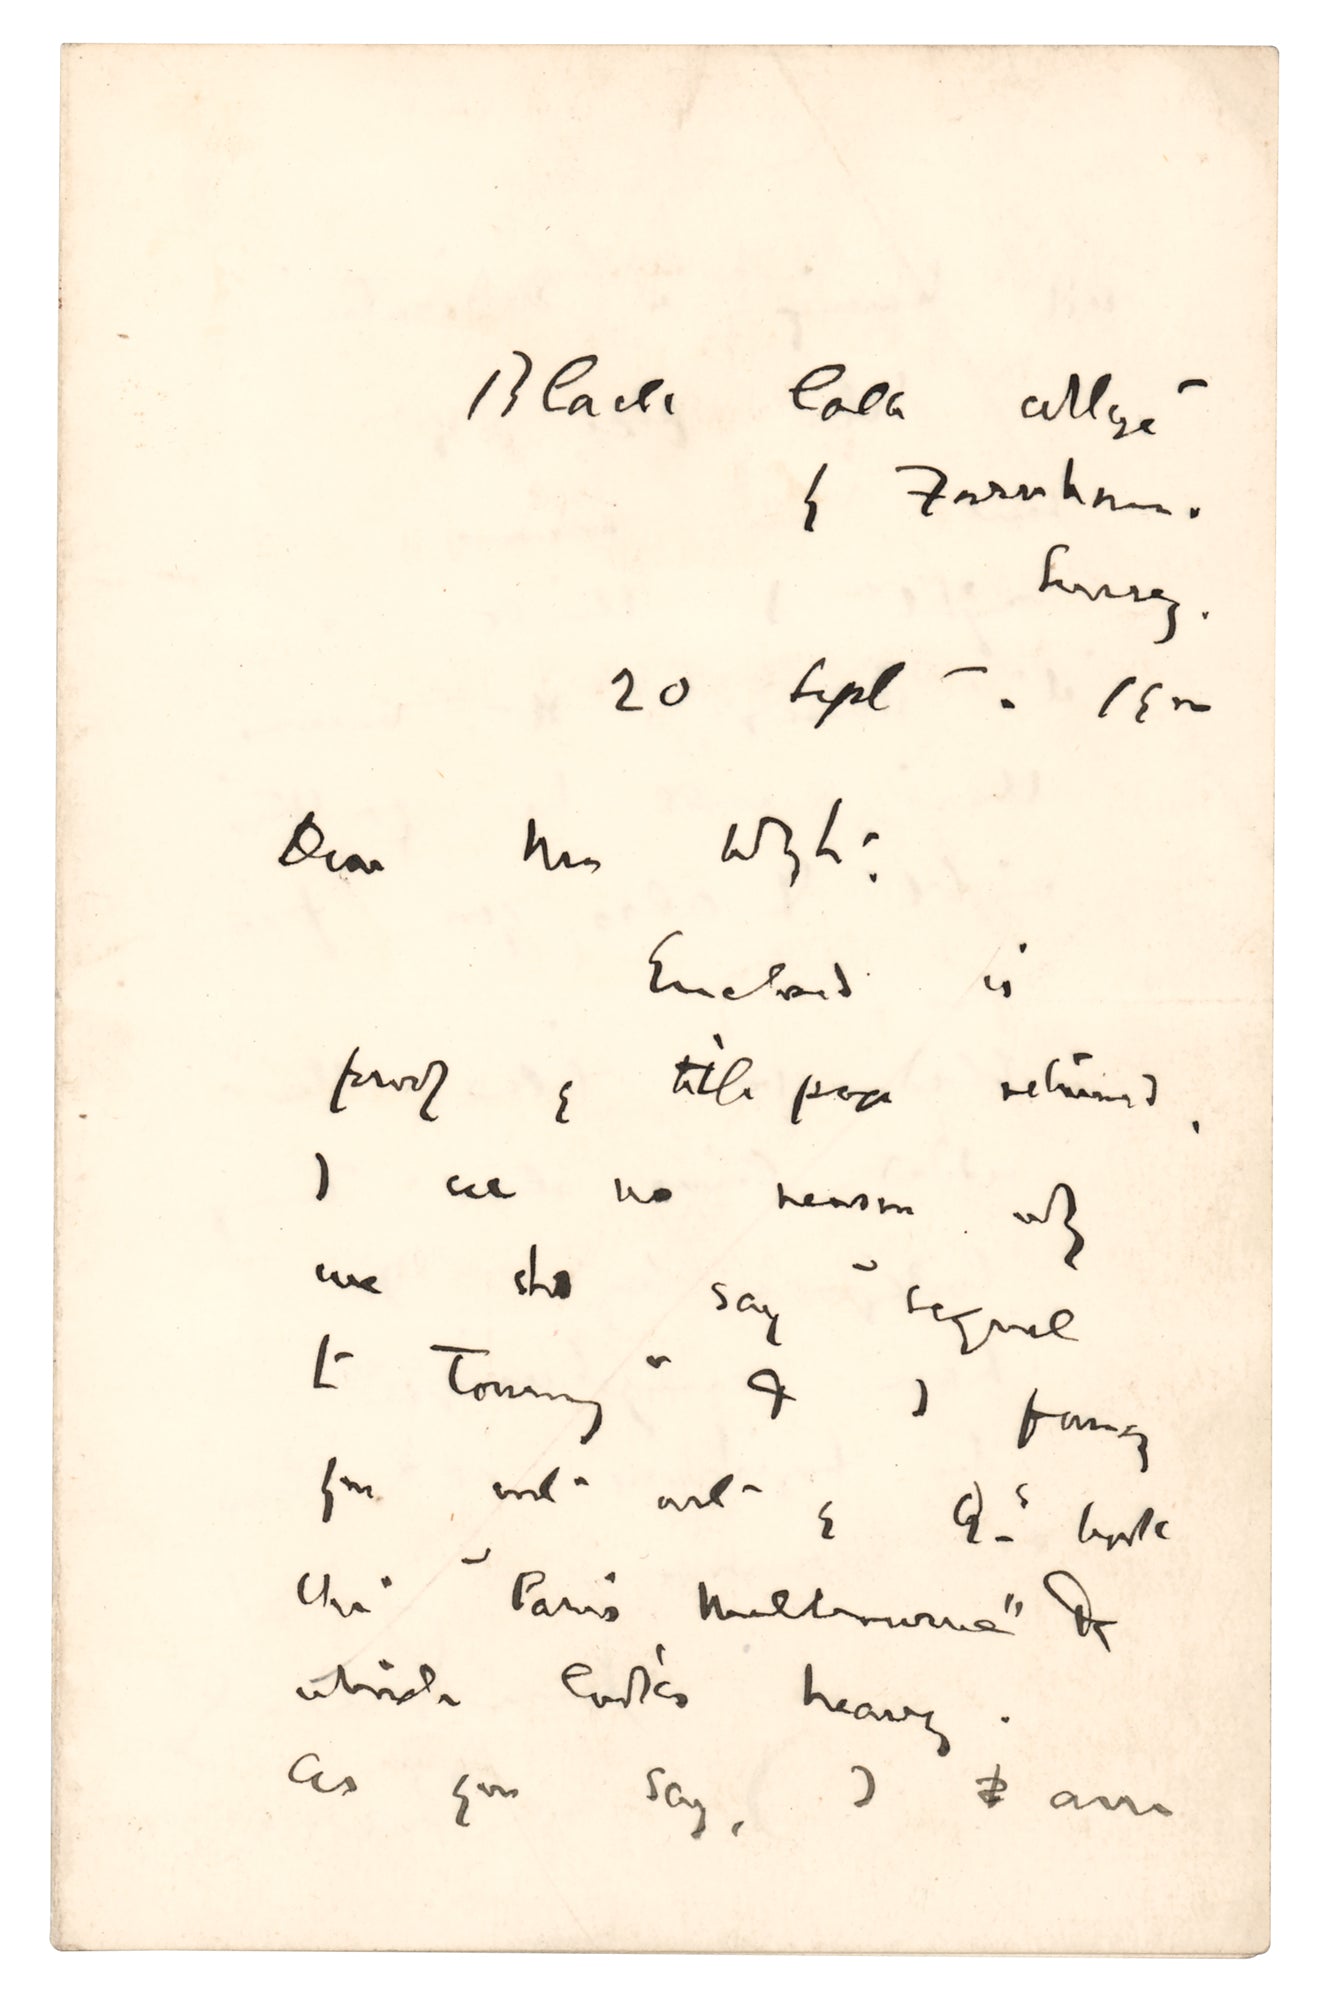 Black Lake Cottage
Farnham.
Surrey.
20 Sept. 1900
Dear Mr
Enclosed is
proof of title page returned.
I see no reason why
we shd say "sequel
to Tommy" & I fancy
you out of Q's book
the "Paris Melbourne" &c
which looks heavy.
As you say, I am